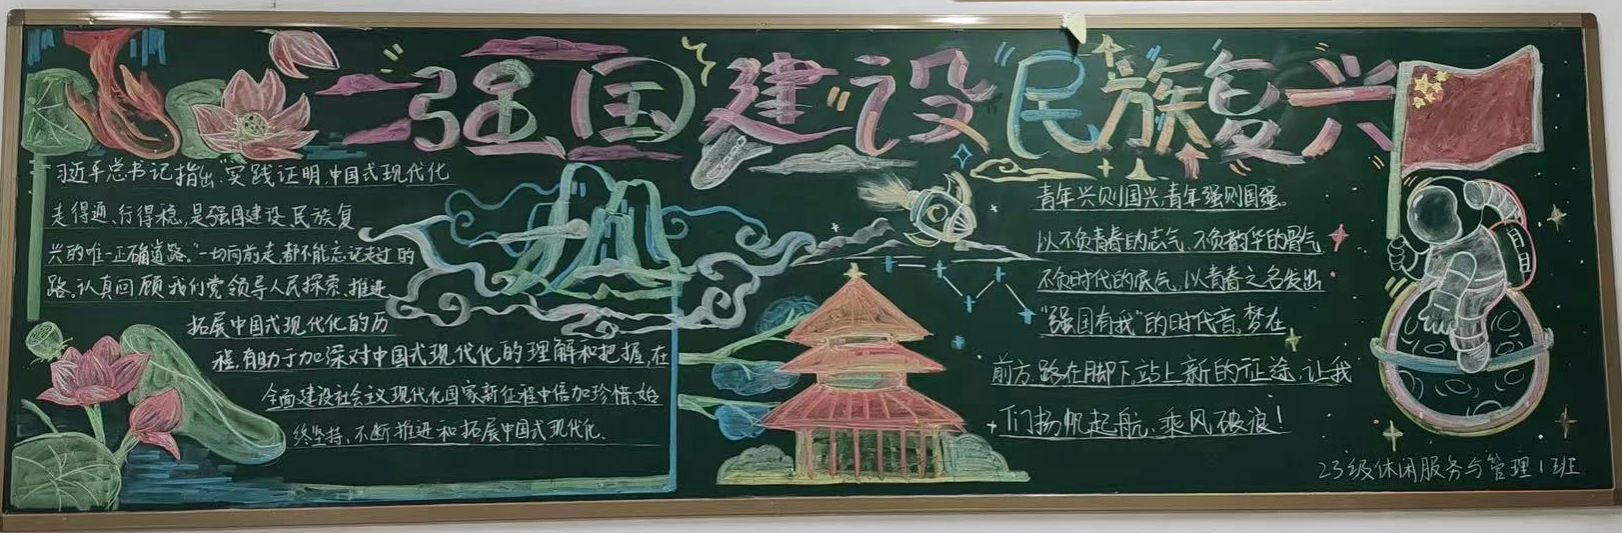 强国建设民族复兴
习近平总书记指出:"实践证明,中国式现代化
走得通、行得稳,是强国建设、民族复
兴的唯一正确道路。"一切向前走,都不能忘记走过的
路。认真回顾我们党领导人民探索、推进
拓展中国式现代化的历
程,有助于加深对中国式现代化的理解和把握,在
全面建设社会主义现代化国家新征程中倍加珍惜、始
终坚持、不断推进和拓展中国式现代化。
青年兴则国兴,青年强则国强。
以不负青春的志气、不负韶华的骨气
不负时代的底气,以青春之名发出
"强国有我"的时代音,梦在
前方,路在脚下,站上新的征途,让我
们扬帆起航,乘风破浪!
23级休闲服务与管理1班